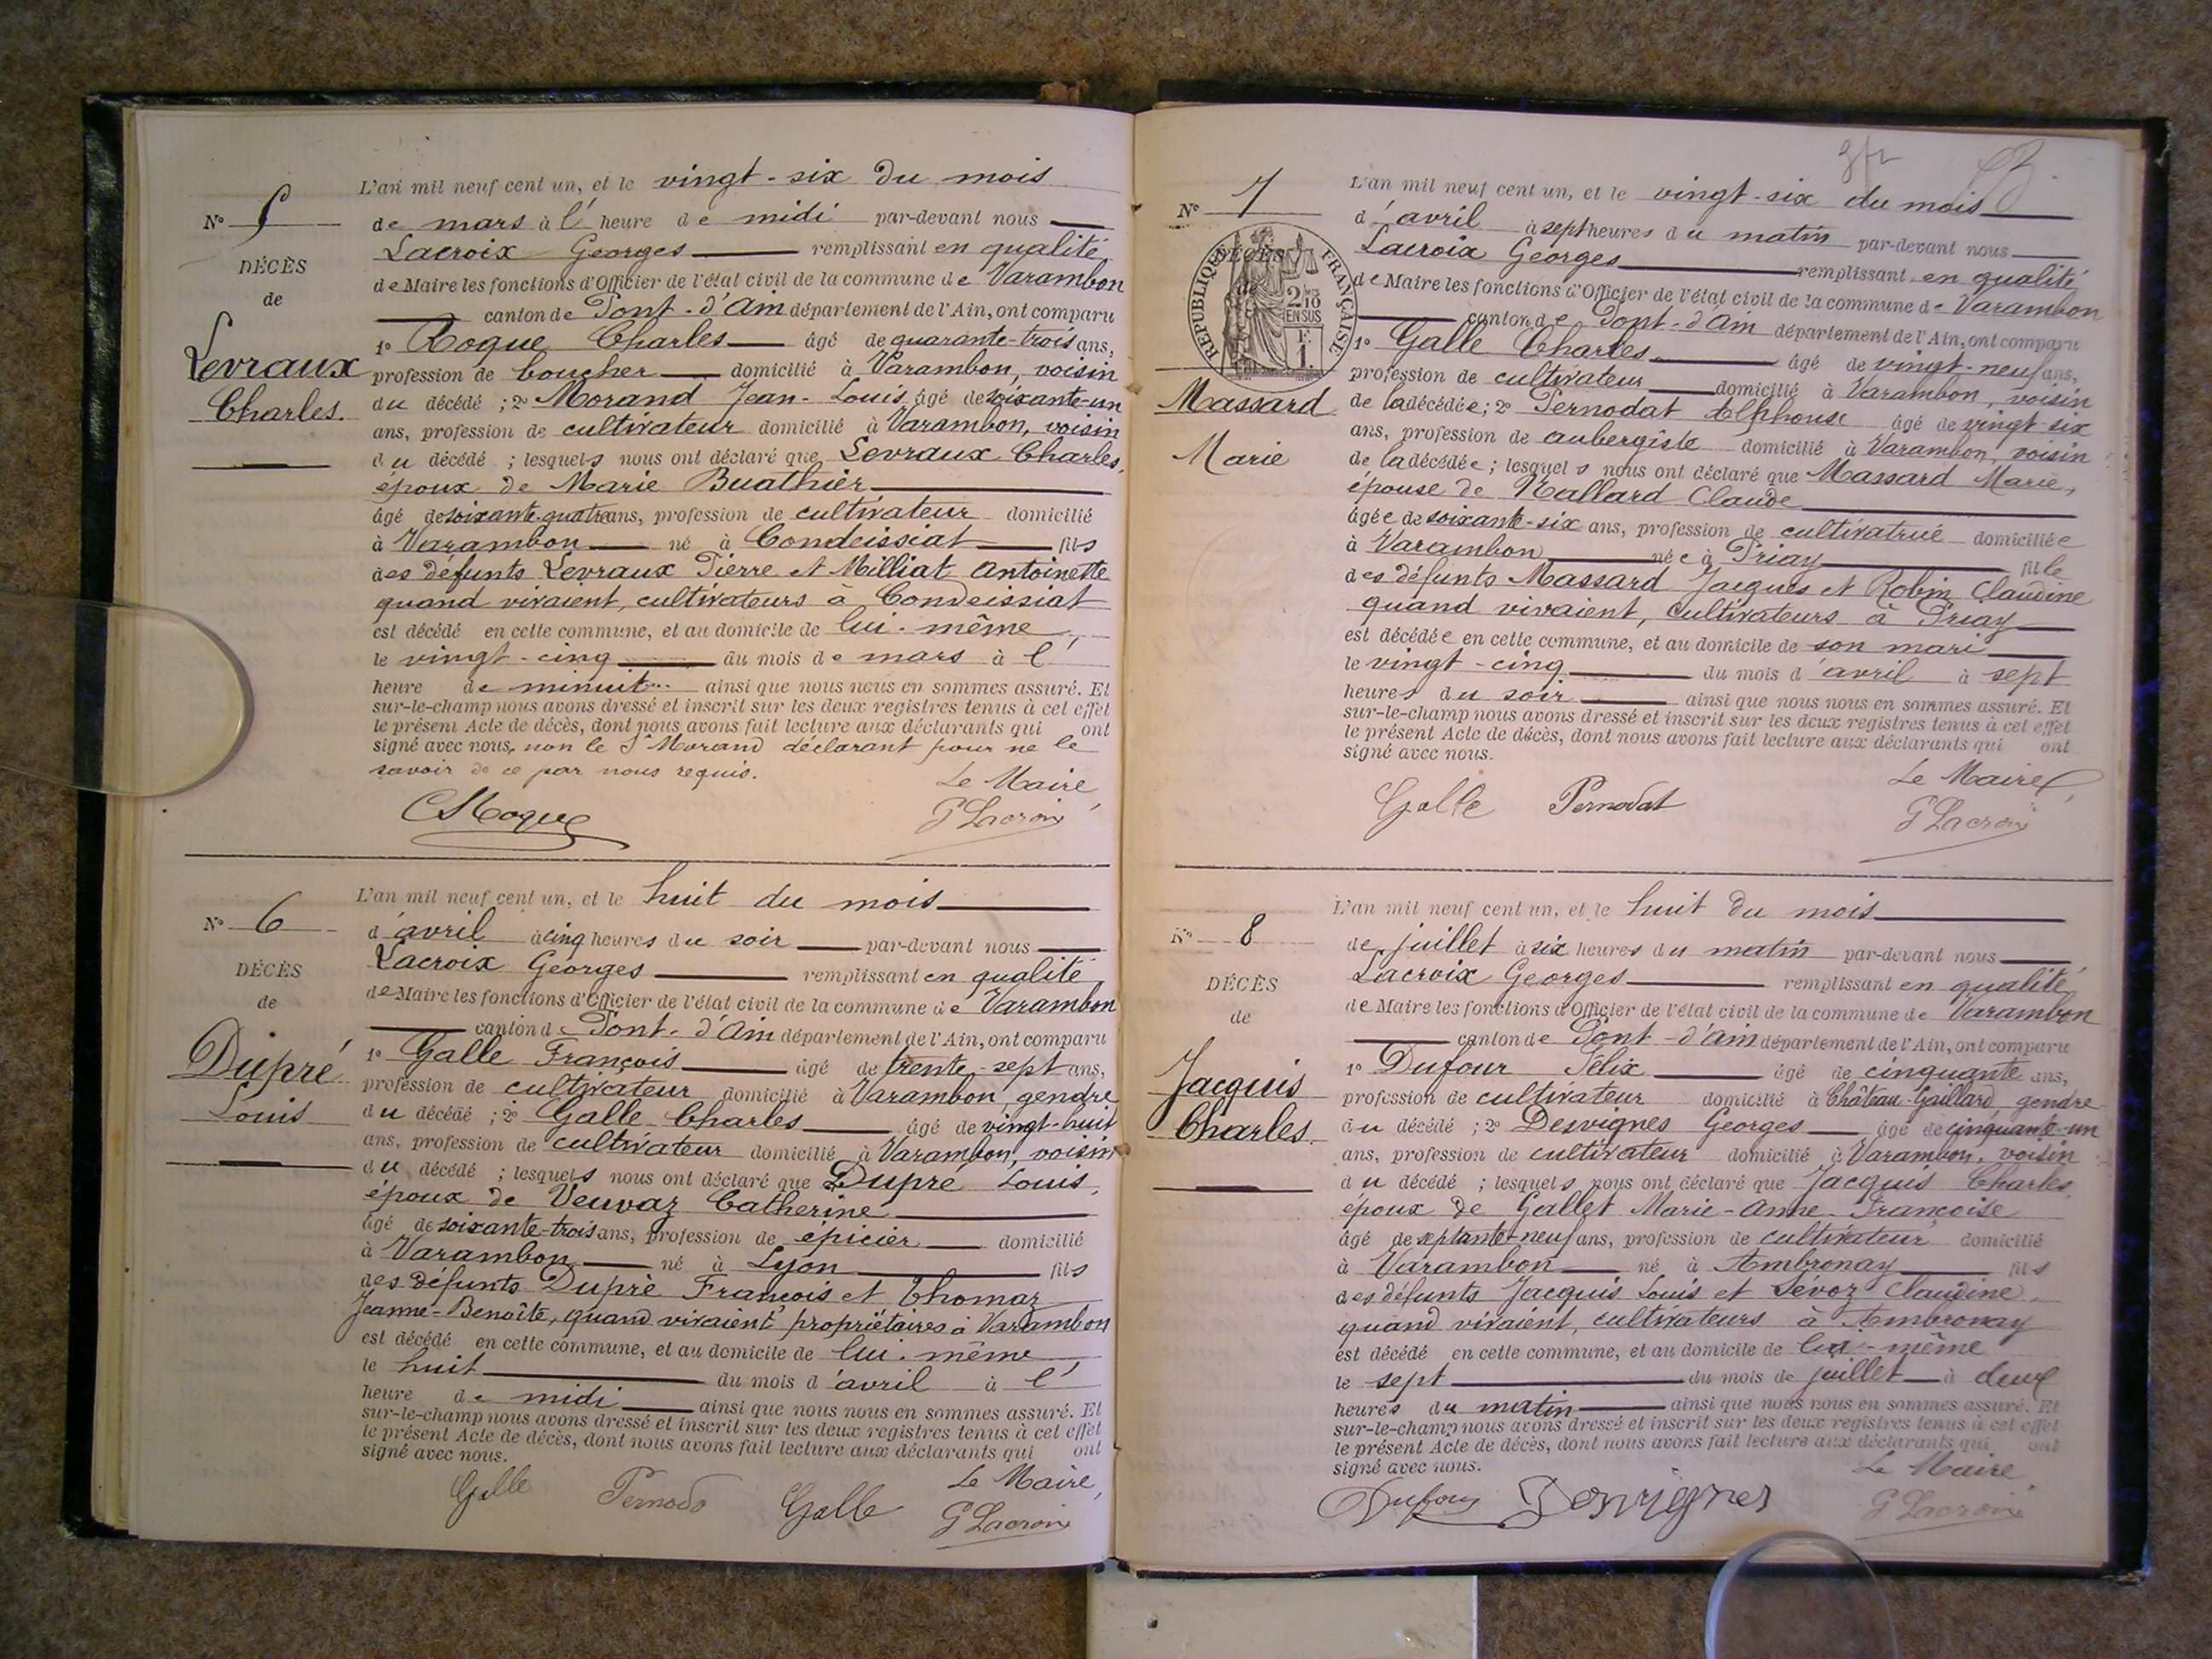 N° 5
DÉCÈS
de
Levraux
Charles.
L'an mil neuf cent un, et le vingt-six du mois
de mars à l' heure de midi par-devant nous
Lacroix Georges remplissant en qualité
de Maire les fonctions d'Officier de l'état civil de la commune de Varambon
canton de Pont-d'Ain département de l'Ain, ont comparu
1° Roque Charles âgé de quarante-trois ans,
profession de boucher domicilié à Varambon, voisin
du décédé ; 2° Morand Jean-Louis âgé de soixante-un
ans, profession de cultivateur domicilié à Varambon, voisin
du décédé ; lesquels nous ont déclaré que Levraux Charles,
époux de Marie Buathier
âgé de soixante-quatre ans, profession de cultivateur domicilié
à Varambon né à Condeissiat fils
des défunts Levraux Pierre et Milliat Antoinette
quand vivaient, cultivateurs à Condeissiat
est décédé en cette commune, et au domicile de lui-même
le vingt-cinq du mois de mars à l'
heure de minuit ainsi que nous nous en sommes assuré. Et
sur-le-champ nous avons dressé et inscrit sur les deux registres tenus à cet effet
le présent Acte de décès, dont nous avons fait lecture aux déclarants qui ont
signé avec nous, non le Sr Morand déclarant pour ne le
savoir de ce par nous requis.
Le Maire,
C Roque G Lacroix
N° 6
DÉCÈS
de
Dupré
Louis
L'an mil neuf cent un, et le huit du mois
d'avril à cinq heures du soir par-devant nous
Lacroix Georges remplissant en qualité
de Maire les fonctions d'Officier de l'état civil de la commune de Varambon
canton de Pont-d'Ain département de l'Ain, ont comparu
1° Galle François âgé de trente-sept ans,
profession de cultivateur domicilié à Varambon, gendre
du décédé ; 2° Galle Charles âgé de vingt-huit
ans, profession de cultivateur domicilié à Varambon, voisin
du décédé ; lesquels nous ont déclaré que Dupré Louis,
époux de Veuvaz Catherine
âgé de soixante-trois ans, profession de épicier domicilié
à Varambon né à Lyon fils
des défunts Duprè François et Thomaz
Jeanne-Benoîte, quand vivaient propriétaires à Varambon
est décédé en cette commune, et au domicile de lui-même
le huit du mois d'avril à l'
heure de midi ainsi que nous nous en sommes assuré. Et
sur-le-champ nous avons dressé et inscrit sur les deux registres tenus à cet effet
le présent Acte de décès, dont nous avons fait lecture aux déclarants qui ont
signé avec nous.
Le Maire,
Galle Galle G Lacroix
3fr
N° 7
DÉCÈS
de
RÉPUBLIQUE FRANÇAISE
2/10
EN SUS
F.
1.
Massard
Marie
L'an mil neuf cent un, et le vingt-six du mois
d'avril à sept heures du matin par-devant nous
Lacroix Georges remplissant en qualité
de Maire les fonctions d'Officier de l'état civil de la commune de Varambon
canton de Pont-d'Ain département de l'Ain, ont comparu
1° Galle Charles âgé de vingt-neuf ans,
profession de cultivateur domicilié à Varambon, voisin
de la décédée ; 2° Pernodat Alphonse âgé de vingt-six
ans, profession de aubergiste domicilié à Varambon, voisin
de la décédée ; lesquels nous ont déclaré que Massard Marie,
épouse de Mallard Claude
âgée de soixante-six ans, profession de cultivatrice domiciliée
à Varambon née à Priay fille
des défunts Massard Jacques et Robin Claudine
quand vivaient, cultivateurs à Priay
est décédée en cette commune, et au domicile de son mari
le vingt-cinq du mois d'avril à sept
heures du soir ainsi que nous nous en sommes assuré. Et
sur-le-champ nous avons dressé et inscrit sur les deux registres tenus à cet effet
le présent Acte de décès, dont nous avons fait lecture aux déclarants qui ont
signé avec nous.
Le Maire,
Galle Pernodat G Lacroix
N° 8
DÉCÈS
de
Jacquis
Charles.
L'an mil neuf cent un, et le huit du mois
de juillet à six heures du matin par-devant nous
Lacroix Georges remplissant en qualité
de Maire les fonctions d'Officier de l'état civil de la commune de Varambon
canton de Pont-d'Ain département de l'Ain, ont comparu
1° Dufour Félix âgé de cinquante ans,
profession de cultivateur domicilié à Château-Gaillard, gendre
du décédé ; 2° Desvignes Georges âgé de cinquante-un
ans, profession de cultivateur domicilié à Varambon, voisin
du décédé ; lesquels nous ont déclaré que Jacquis Charles,
époux de Gallet Marie-Anne-Françoise
âgé de septante-neuf ans, profession de cultivateur domicilié
à Varambon né à Ambronay fils
des défunts Jacquis Louis et Sévoz Claudine,
quand vivaient, cultivateurs à Ambronay
est décédé en cette commune, et au domicile de lui-même
le sept du mois de juillet à deux
heures du matin ainsi que nous nous en sommes assuré. Et
sur-le-champ nous avons dressé et inscrit sur les deux registres tenus à cet effet
le présent Acte de décès, dont nous avons fait lecture aux déclarants qui ont
signé avec nous.
Le Maire
Dufour Desvignes G Lacroix